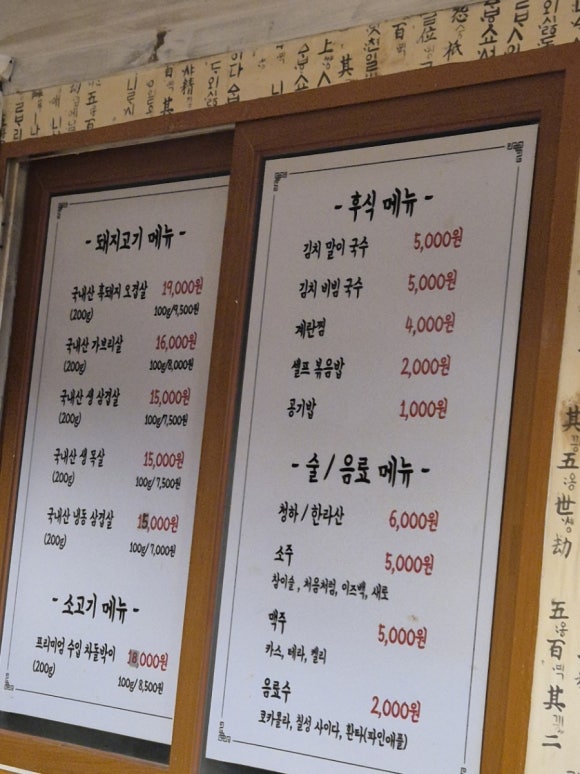 - 돼지고기 메뉴 -
국내산 흑돼지 오겹살 19,000원
(200g) 100g/9,500원
국내산 가브리살 16,000원
(200g) 100g/8,000원
국내산 생 삼겹살 15,000원
(200g) 100g/7,500원
국내산 생 목살 15,000원
(200g) 100g/7,500원
국내산 냉동 삼겹살 15,000원
(200g) 100g/7,000원
- 소고기 메뉴 -
프리미엄 수입 차돌박이 18,000원
(200g) 100g/8,500원
- 후식 메뉴 -
김치 말이 국수 5,000원
김치 비빔 국수 5,000원
계란찜 4,000원
셀프 볶음밥 2,000원
공기밥 1,000원
- 술 / 음료 메뉴 -
청하 / 한라산 6,000원
소주 5,000원
참이슬, 처음처럼, 이즈백, 새로
맥주 5,000원
카스, 테라, 켈리
음료수 2,000원
코카콜라, 칠성 사이다, 환타(파인애플)
其
五
世
劫
五
百
其
二